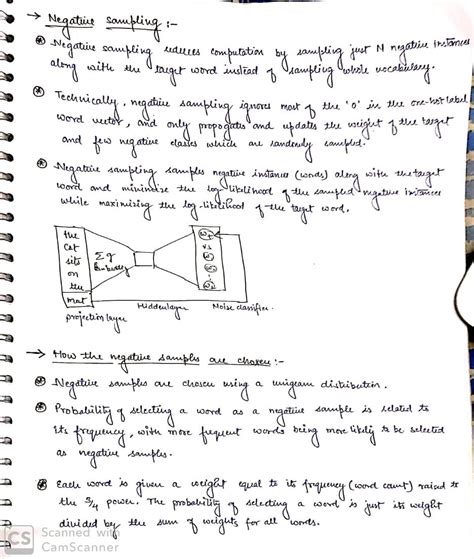 → Negative sampling :-
Negative sampling reduces computation by sampling just N negative instances
along with the target word instead of sampling whole vocabulary.
Technically, negative sampling ignores most of the '0' in the one-hot label
word vector, and only propogates and updates the weight of the target
and few negative classes which are randomly sampled.
Negative sampling samples negative instances (words) along with the target
word and minimize the log-likelihood of the sampled negative instances
while maximizing the log-likelihood of the target word.
the
cat
sits
on
the
mat
Σ of
Embeddings
vs
Hidden layer
Noise classifier.
projection layer
→ How the negative samples are chosen :-
Negative samples are chosen using a unigram distribution.
Probability of selecting a word as a negative sample is related to
its frequency, with more frequent words being more likely to be selected
as negative samples.
Each word is given a weight equal to its frequency (word count) raised to
the 3/4 power. The probability of selecting a word is just its weight
divided by the sum of weights for all words.
CS Scanned with
CamScanner